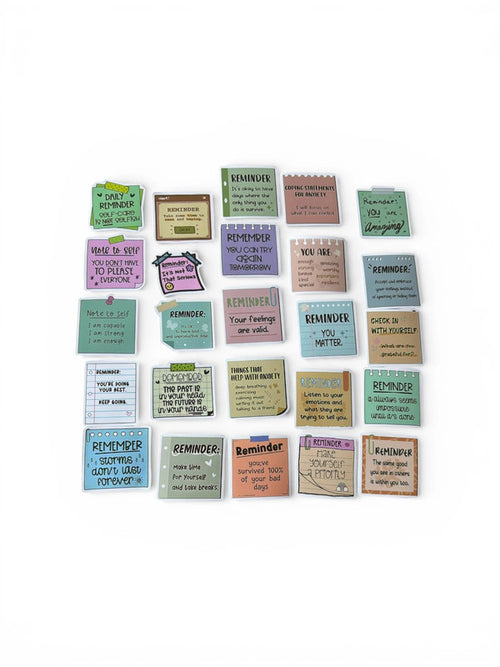 DAILY
REMINDER
SELF-CARE
IS NOT SELFISH
REMINDER
Take some time to
REMINDER
It's okay to have
days where the
only thing you
do is survive.
COPING STATEMENTS
FOR ANXIETY
I will focus on
what I can control
Reminder:
you are
Amazing!
NOTE TO SELF
YOU DON'T HAVE
TO PLEASE
EVERYONE
Reminder:
It's Not
That Serious
REMEMBER
YOU CAN TRY
AGAIN
TOMORROW
YOU ARE
enough
kind
loved
special
amazing
worthy
REMINDER:
Accept and embrace
your feelings instead
of ignoring or hiding them
Note to Self
I am capable
I am strong
I am enough
REMINDER:
REMINDER
Your feelings
are valid.
REMINDER
YOU
MATTER.
CHECK IN
WITH YOURSELF
REMINDER:
YOU'RE DOING
YOUR BEST.
KEEP GOING.
THE PAST IS
IN YOUR HEAD
THE FUTURE IS
IN YOUR HANDS
THINGS THAT
HELP WITH ANXIETY
deep breathing
exercising
calming music
writing it out
talking to a friend
REMINDER
Listen to your
emotions and
what they are
trying to tell you.
REMINDER
IT ALWAYS SEEMS
IMPOSSIBLE
UNTIL IT'S DONE
REMEMBER
STORMS
DON'T LAST
FOREVER
REMINDER:
Make time
for yourself
and take breaks.
Reminder
you've survived
100%
of your bad
days
REMINDER
MAKE
YOURSELF
A PRIORITY
REMINDER
The same good
you see in others
is within you too.